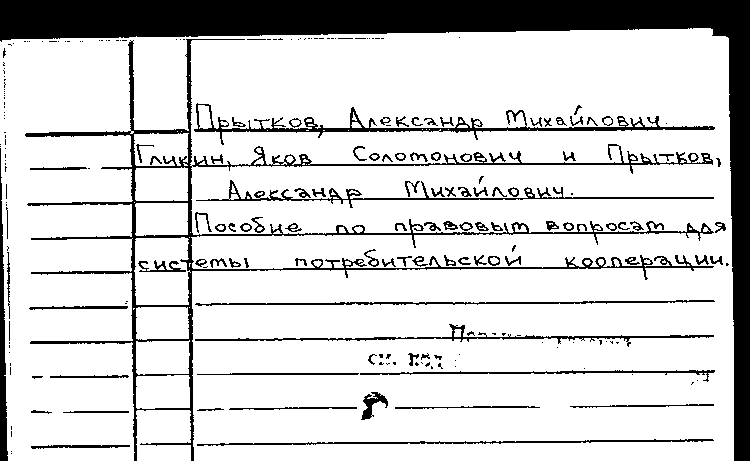 Прытков, Александр Михайлович.
Гликин, Яков Соломонович и Прытков,
Александр Михайлович.
Пособие по правовым вопросам для
системы потребительской кооперации.
см. под